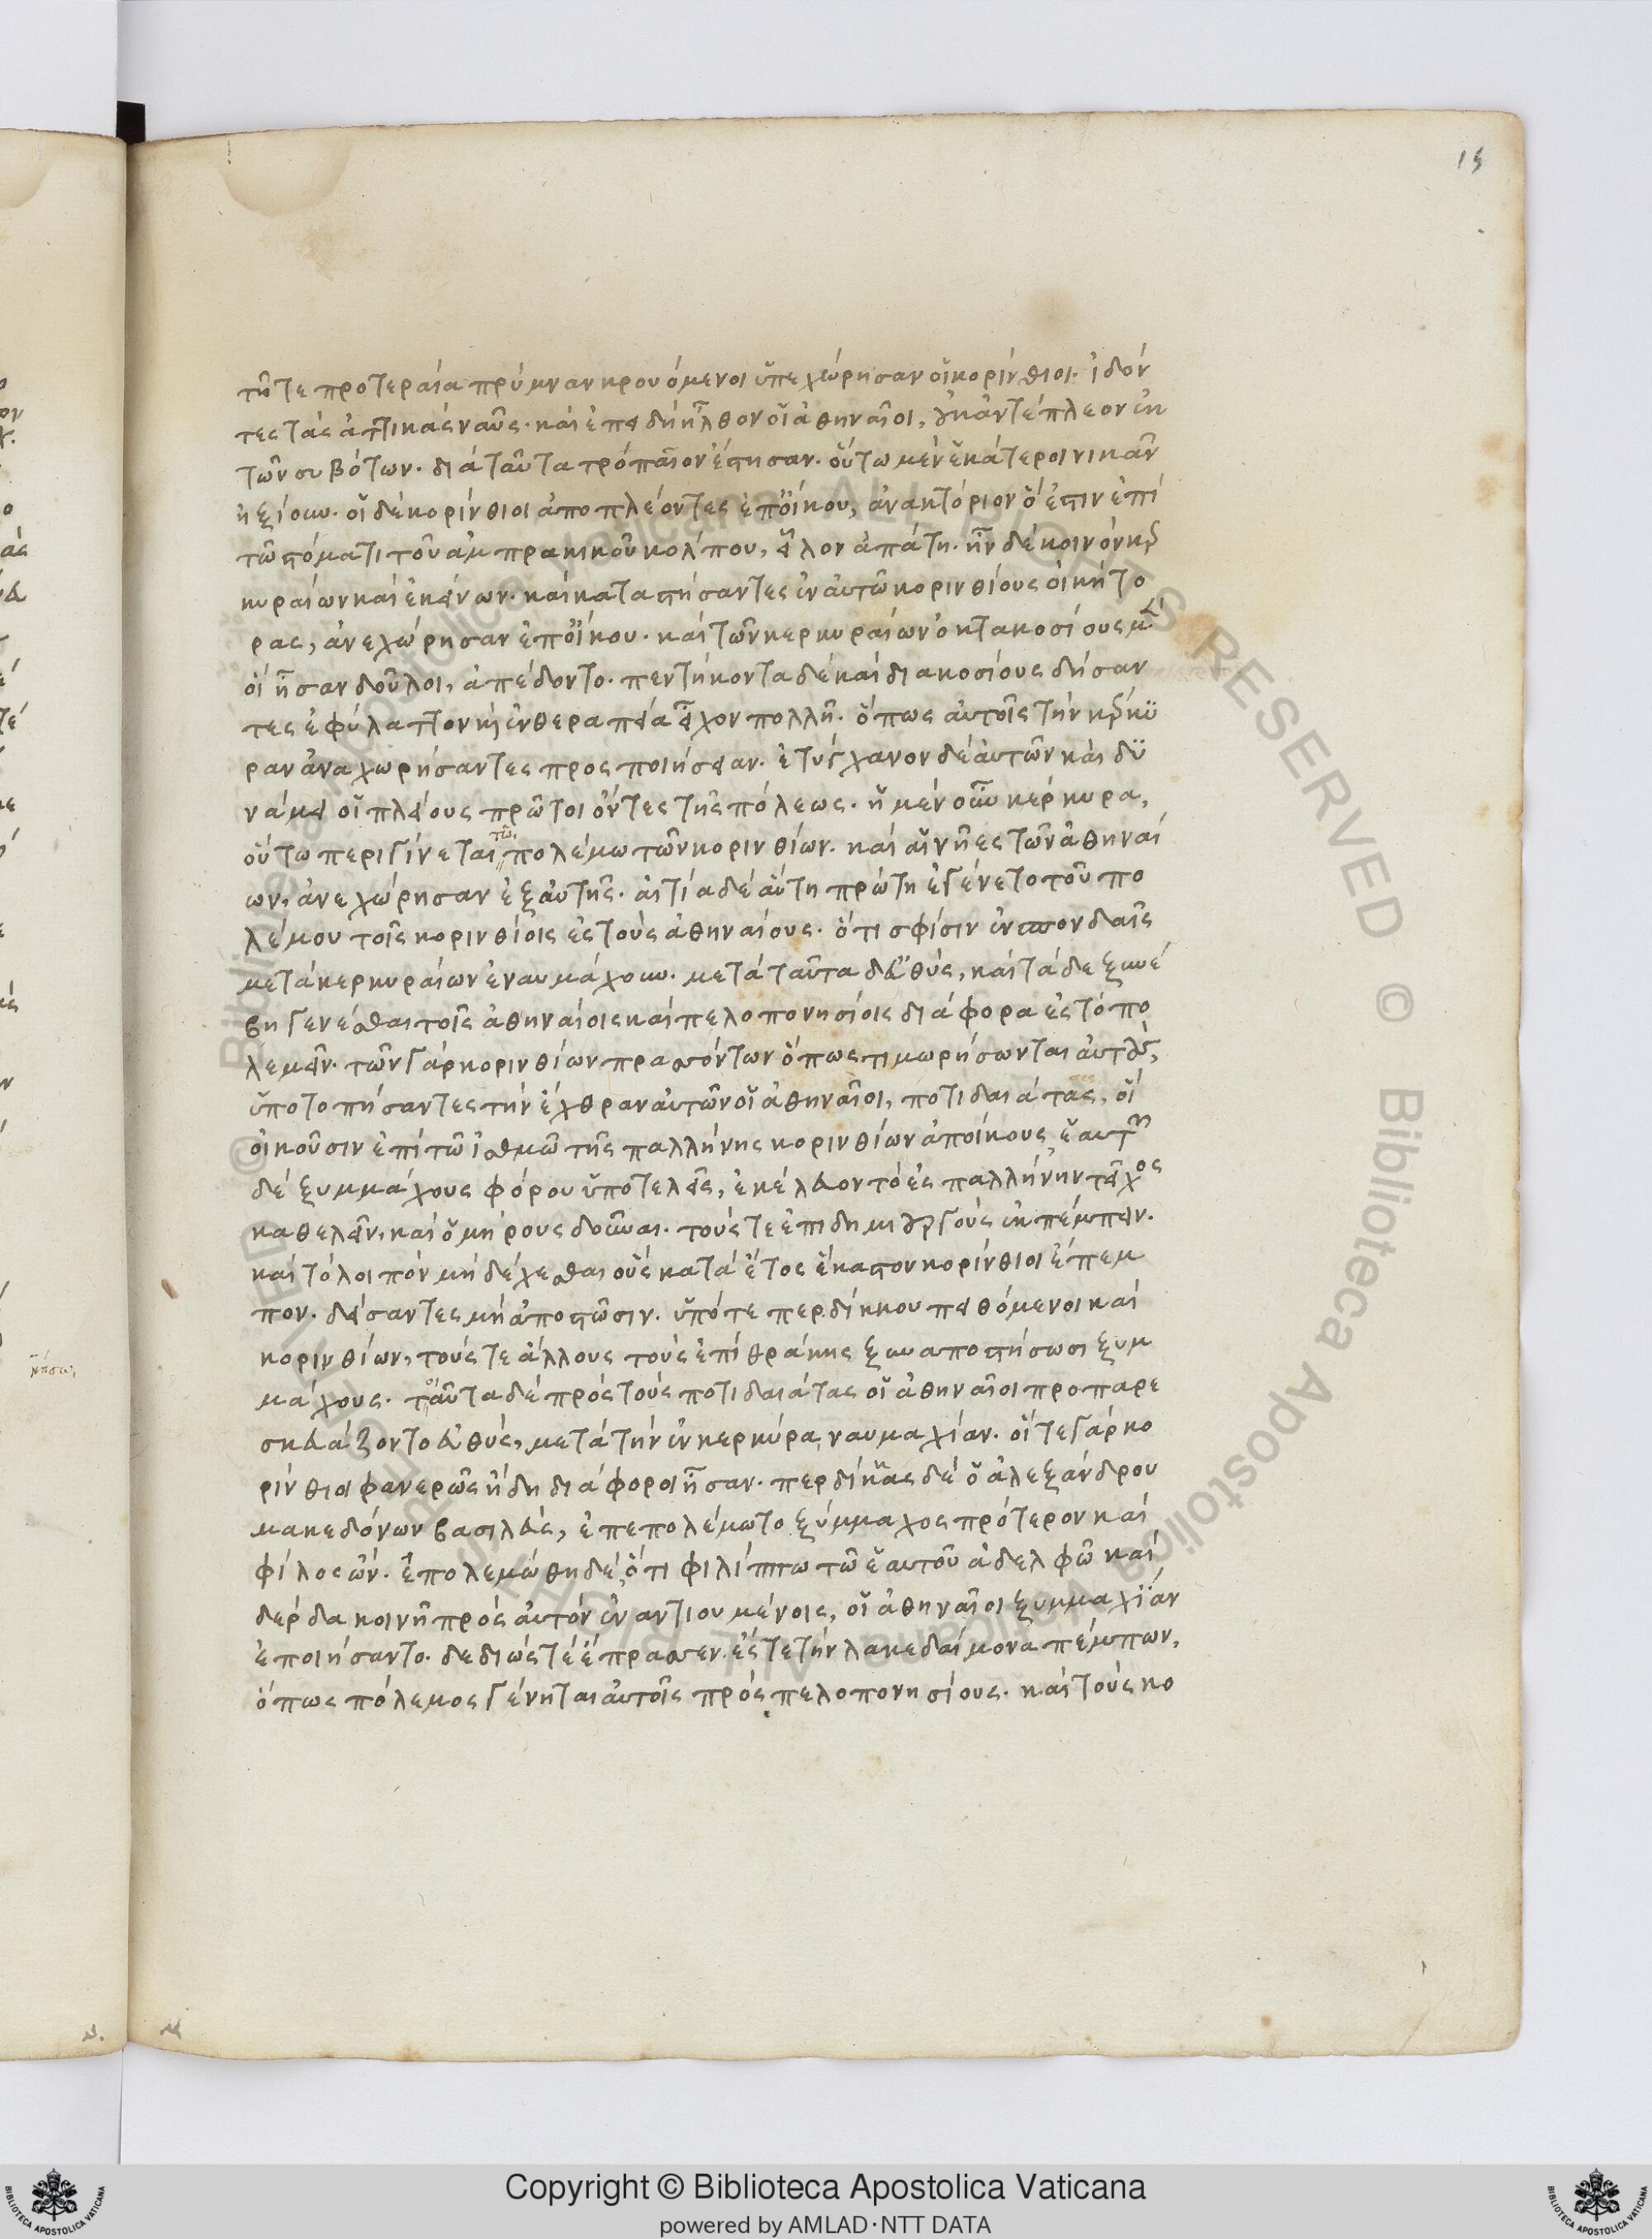 15
τῆ τε προτεραία πρύμναν κρουόμενοι ὑπεχώρησαν οἱ κορίνθιοι· ἰδόν
τες τὰς ἀττικὰς ναῦς· καὶ ἐπειδὴ ἦλθον οἱ ἀθηναῖοι, οὐκ ἀντέπλεον ἐκ
τῶν συβότων· διὰ ταῦτα τρόπαιον ἔστησαν· οὕτω μὲν ἑκάτεροι νικᾶν
ἠξίουν· οἱ δὲ κορίνθιοι ἀποπλέοντες ἐποίκου, ἀνακτόριον ὅ ἐστιν ἐπὶ
τῶ στόματι τοῦ ἀμπρακικοῦ κόλπου, εἷλον ἀπάτη· ἦν δὲ κοινὸν κερ
κυραίων καὶ ἐκείνων· καὶ καταστήσαντες ἐν αὐτῶ κορινθίους οἰκήτο
ρας, ἀνεχώρησαν ἐποίκου· καὶ τῶν κερκυραίων ὀκτακοσίους μὲν
οἳ ἦσαν δοῦλοι, ἀπέδοντο· πεντήκοντα δὲ καὶ διακοσίους δήσαν
τες ἐφύλαττον καὶ ἐν θεραπεία εἶχον πολλῆ· ὅπως αὐτοῖς τὴν κερκύ
ραν ἀναχωρήσαντες προσποιήσειαν· ἐτύγχανον δὲ αὐτῶν καὶ δυ
νάμει οἱ πλείους πρῶτοι ὄντες τῆς πόλεως· ἡ μὲν οὖν κέρκυρα,
οὕτω περιγίνεται τῶ πολέμω τῶν κορινθίων· καὶ αἱ νῆες τῶν ἀθηναί
ων, ἀνεχώρησαν ἐξ αὐτῆς· αἰτία δὲ αὕτη πρώτη ἐγένετο τοῦ πο
λέμου τοῖς κορινθίοις ἐς τοὺς ἀθηναίους· ὅτι σφίσιν ἐν σπονδαῖς
μετὰ κερκυραίων ἐναυμάχουν· μετὰ ταῦτα δ' εὐθὺς, καὶ τάδε ξυνέ
βη γενέσθαι τοῖς ἀθηναίοις καὶ πελοπονησίοις διάφορα ἐς τὸ πο
λεμεῖν· τῶν γὰρ κορινθίων πρασσόντων ὅπως τιμωρήσωνται αὐτούς,
ὑποτοπήσαντες τὴν ἔχθραν αὐτῶν οἱ ἀθηναῖοι, ποτιδαιάτας, οἳ
οἰκοῦσιν ἐπὶ τῶ ἰσθμῶ τῆς παλλήνης κορινθίων ἀποίκους, ἑαυτῶν
δὲ ξυμμάχους φόρου ὑποτελεῖς, ἐκέλευον τὸ ἐς παλλήνην τεῖχος
καθελεῖν, καὶ ὁμήρους δοῦναι· τούς τε ἐπιδημιουργοὺς ἐκπέμπειν·
καὶ τὸ λοιπὸν μὴ δέχεσθαι οὓς κατὰ ἔτος ἕκαστον κορίνθιοι ἔπεμ
πον· δείσαντες μὴ ἀποστῶσιν· ὑπό τε περδίκκου πειθόμενοι καὶ
κορινθίων, τούς τε ἄλλους τοὺς ἐπὶ θράκης ξυναποστήσωσι ξυμ
μάχους· ταῦτα δὲ πρὸς τοὺς ποτιδαιάτας οἱ ἀθηναῖοι προπαρε
σκευάζοντο εὐθὺς, μετὰ τὴν ἐν κερκύρα ναυμαχίαν· οἵ τε γὰρ κο
ρίνθιοι φανερῶς ἤδη διάφοροι ἦσαν· περδίκκας δὲ ὁ ἀλεξάνδρου
μακεδόνων βασιλεὺς, ἐπεπολέμωτο ξύμμαχος πρότερον καὶ
φίλος ὤν· ἐπολεμώθη δὲ, ὅτι φιλίππω τῶ ἑαυτοῦ ἀδελφῶ καὶ
δέρδα κοινῆ πρὸς αὐτὸν ἐναντιουμένοις, οἱ ἀθηναῖοι ξυμμαχίαν
ἐποιήσαντο· δεδιώς τὲ ἔπρασσεν· ἔς τε τὴν λακεδαίμονα πέμπων,
ὅπως πόλεμος γένηται αὐτοῖς πρὸς πελοπονησίους· καὶ τοὺς κο
Copyright © Biblioteca Apostolica Vaticana
powered by AMLAD·NTT DATA